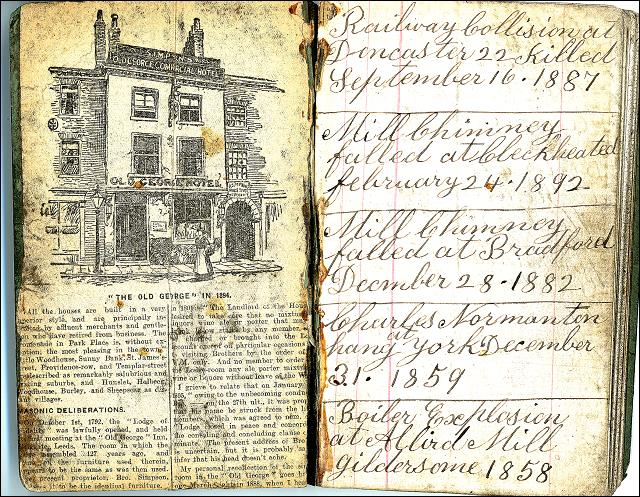 SIMPSON'S
OLD GEORGE COMMERCIAL HOTEL
OLD GEORGE HOTEL
"THE OLD GEORGE" IN 1894.
All the houses are built in a very
superior style, and are principally
by affluent merchants and gentle-
who have retired from business. The
in Park Place is, without
the most pleasing in the town.
Little Woodhouse, Sunny Bank, St. James's-
street, Providence-row, and Templar-street
described as remarkably salubrious and
suburbs, and Hunslet, Holbeck,
Woodhouse, Burley, and Sheepscar as
villages.
MASONIC DELIBERATIONS.
October 1st, 1792, the "Lodge of
was lawfully opened, and held
first meeting at the "Old George" Inn,
Leeds. The room in which the
assembled 127 years ago, and
of the furniture used therein,
to be the same as was then used.
present proprietor, Bro. Simpson,
to be the identical furniture.
The Landlord of the House
desired to take care that no
liquors wine ale or porter
any member
or brought into the
of particular
visiting. Brothers by the order of
W.M. only. And no member to order
Lodge-room any ale porter
wine or liquor without leave of the
I grieve to relate that on January
owing to the unbecoming
on the 27th ult., it was
be struck from the
members, which was agreed to
Lodge closed in peace and concord
the compasing and concluding clause
minute. The present address of Bro.
is uncertain, but it is probably
infer that his head doesn't ache.
My personal recollection of the
room in the "Old George" goes
March 1888, when I
Railway Collision at
Doncaster 22 Killed
September 16. 1887
Mill Chimney
falled at Cleckheated
february 24. 1892
Mill Chimney
falled at Bradford
Decmber 28. 1882
Charles Normanton
hang at York December
31. 1859
Boiler Explosion
at Allird Mill
gildersome 1858